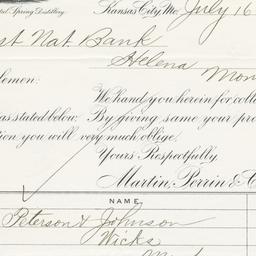 tal Spring Distillery. Kansas City, Mo. July 16
st Nat. Bank
Helena Mon
lemen:
We hand you herein for colle
as stated below. By giving same your pro
tion you will very much oblige.
Yours Respectfully,
Martin, Perrin & C
NAME
Peterson & Johnson
Wicks